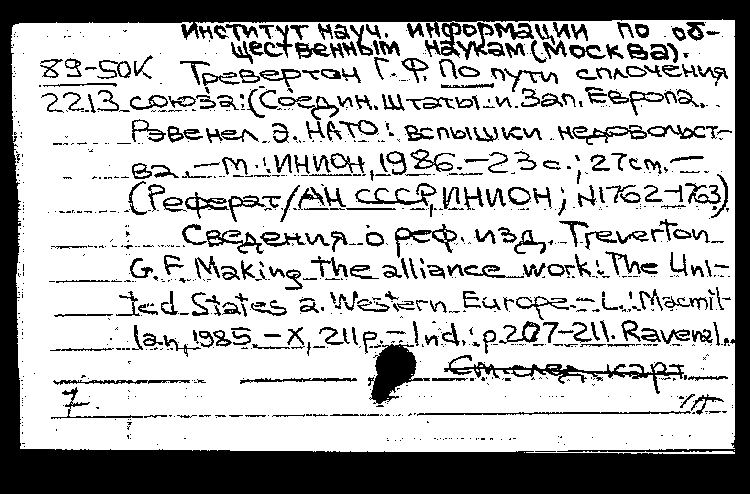 Институт науч. информации по об-
щественным наукам (Москва).
89-50К Тревертон Г.Ф. По пути сплочения
2213 союза: (Соедин. Штаты и Зап. Европа.
Рэвенел Э. НАТО: вспышки недовольст-
ва. — М.: ИНИОН, 1986. — 23 с.; 27 см. —
(Реферат/АН СССР, ИНИОН; N1762-1763)
Сведения о реф. изд. Treverton
G.F. Making the alliance work: The Uni-
ted States a. Western Europe. — L.: Macmil-
lan, 1985. — X, 211 p. — Ind.: p. 207-211. Ravenal..
См. след. карт
7